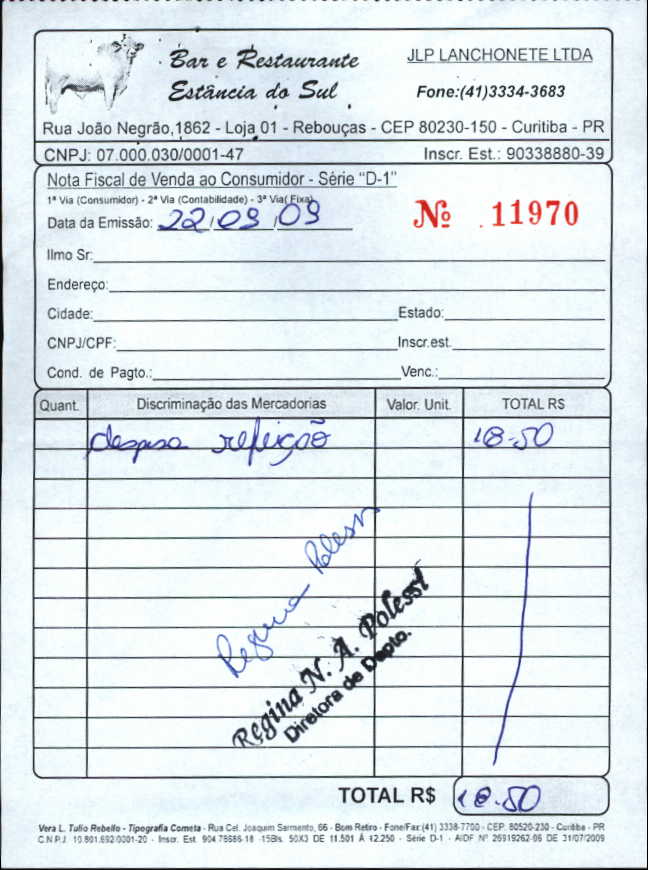 Bar e Restaurante
Estância do Sul
JLP LANCHONETE LTDA
Fone:(41)3334-3683
Rua João Negrão,1862 - Loja 01 - Rebouças - CEP 80230-150 - Curitiba - PR
CNPJ: 07.000.030/0001-47 Inscr. Est.: 90338880-39
Nota Fiscal de Venda ao Consumidor - Série "D-1"
1ª Via (Consumidor) - 2ª Via (Contabilidade) - 3ª Via( Fixa)
Data da Emissão: 22/09/09
Nº 11970
Ilmo Sr:
Endereço:
Cidade: Estado:
CNPJ/CPF: Inscr.est.
Cond. de Pagto.: Venc.:
Quant. Discriminação das Mercadorias Valor. Unit. TOTAL R$
despesa refeição 18-50
Regina Polessi
Regina N. A. Polessi
Diretora de Depto.
TOTAL R$ 18-50
Vera L. Tulio Rebello - Tipografia Cometa - Rua Cel. Joaquim Sarmento, 66 - Bom Retiro - Fone/Fax:(41) 3338-7700 - CEP. 80520-230 - Curitiba - PR
C.N.P.J. 10.801.692/0001-20 - Inscr. Est. 904.78686-18 -15Bls. 50X3 DE 11.501 À 12.250 - Série D-1 - AIDF Nº 26919262-06 DE 31/07/2009